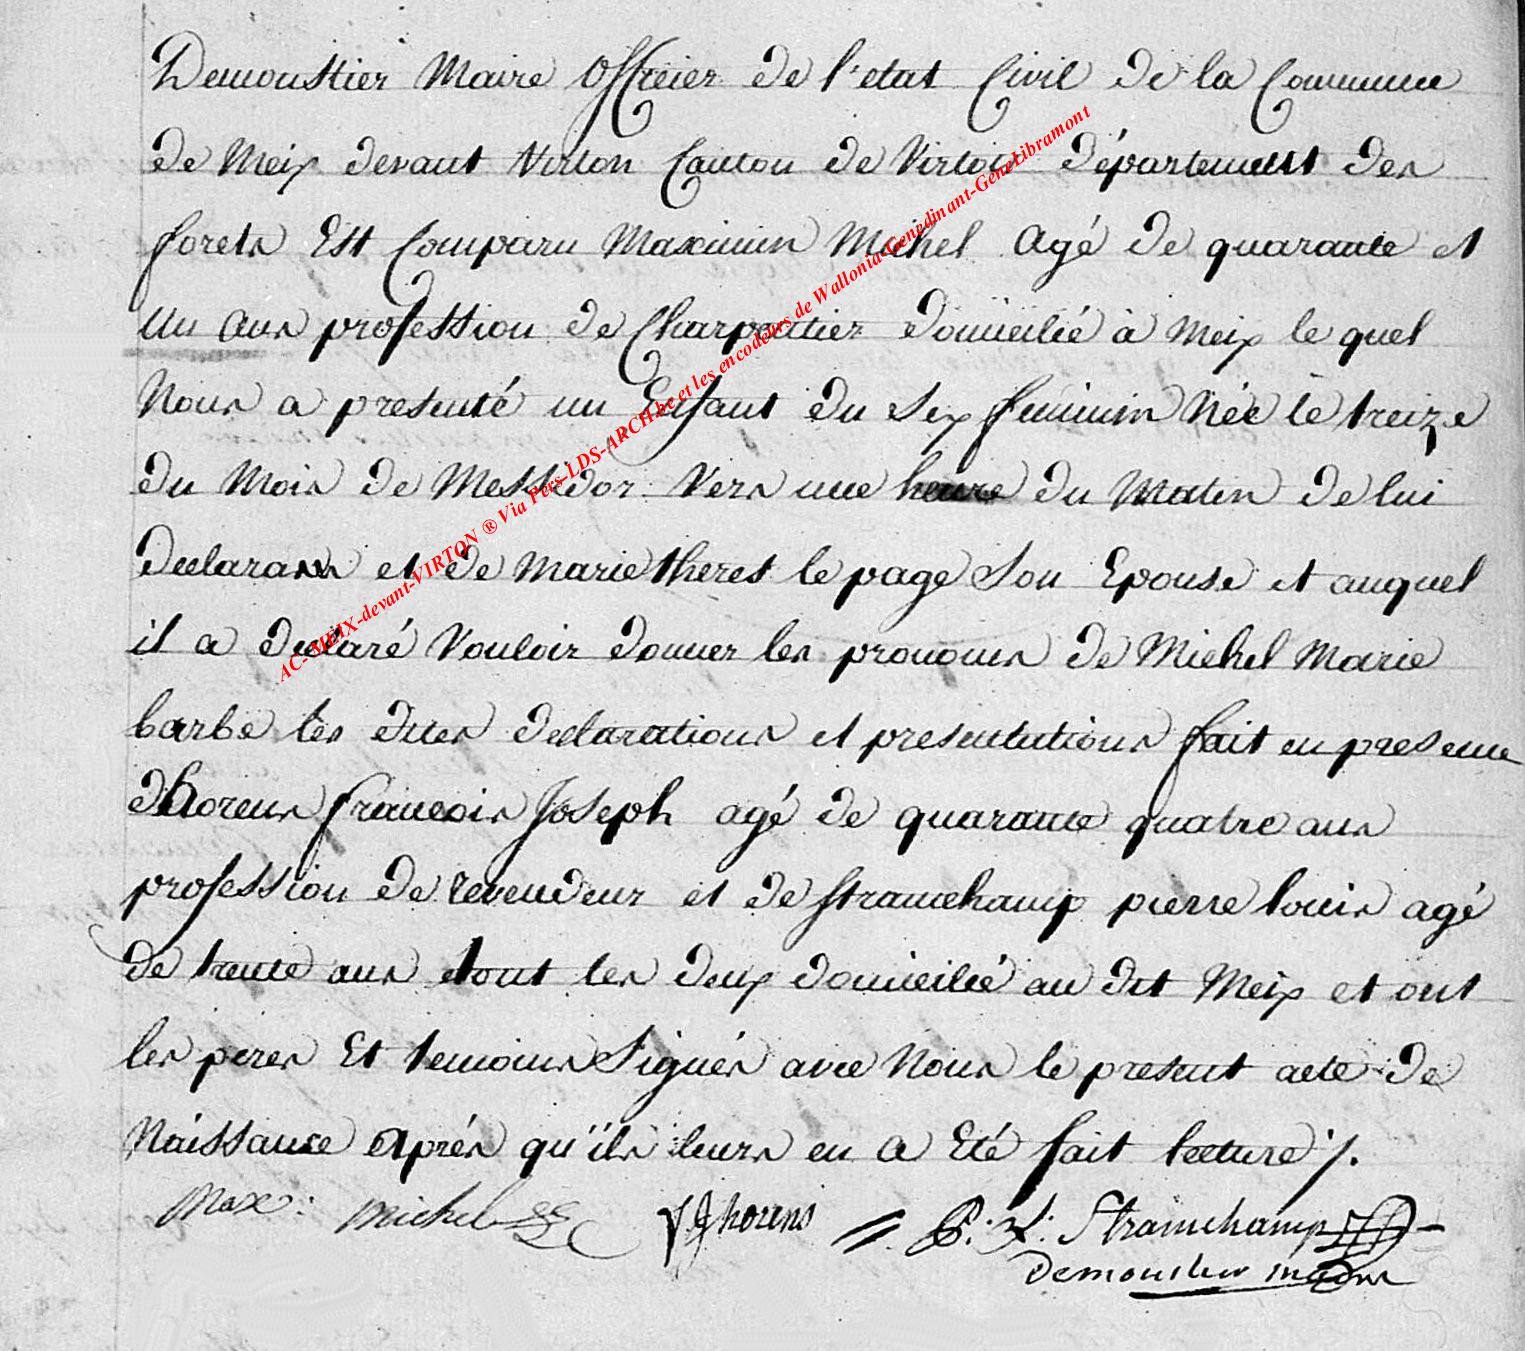 Demoustier Maire Officier de l'etat Civil de la Commune
de Meix devant Virton Canton de Virton département des
forets Est Comparu Maximin Michel Agé de quarante et
un ans profession de Charpentier domicilié à Meix le quel
Nous a presenté un Enfant du Sex feminin Née le treize
du Mois de Messidor Vers une heure du Matin de lui
Declarans et de Marie theres le page Son Epouse et auquel
il a declaré Vouloir donner les pronoms de Michel Marie
barbe les dites declarations et presentutions fait en presence
dhorens francois Joseph agé de quarante quatre ans
profession de revendeur et de Strainchamp pierre louis agé
de trente ans tout les deux domicilié au dit Meix et ont
les peres Et temoins Signés avec Nous le present acte de
Naissance Aprés qu'ils leurs en a Eté fait lecture ./.
Max: Michel FJ horens P: L: Strainchamp
demoustier maire
AC-MEIX-devant-VIRTON ® Via Pers-LDS-ARCH.be et les encodeurs de Wallonia-Genedinant-GeneLibramont